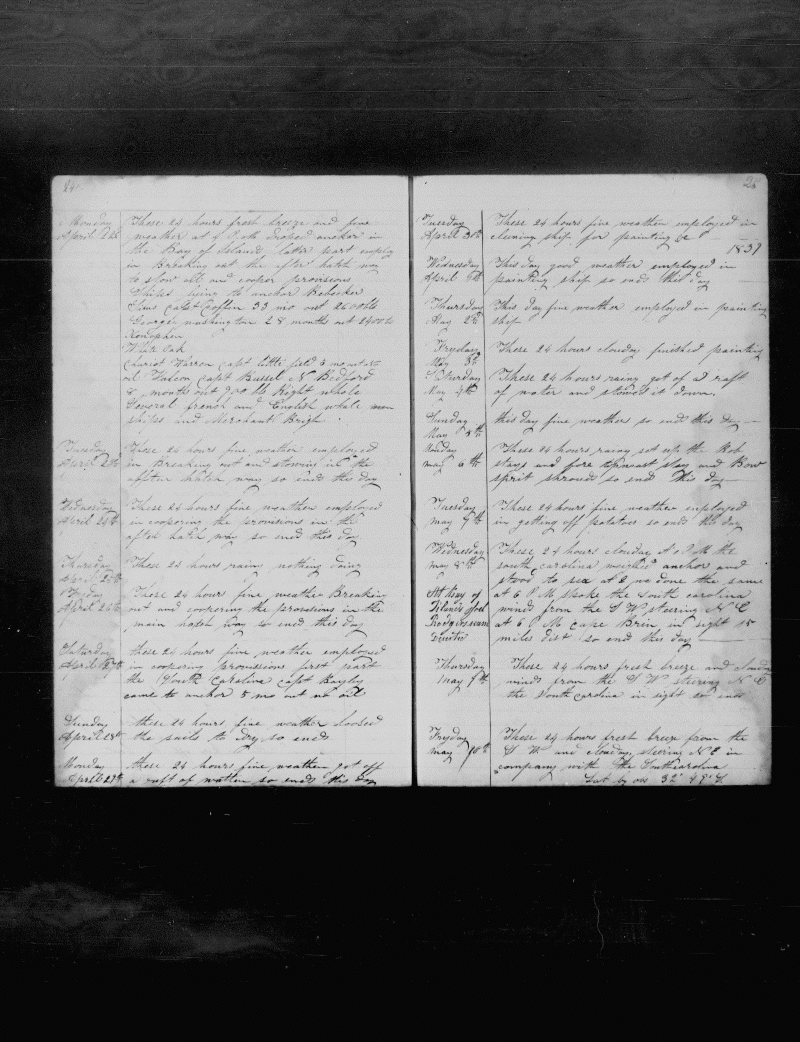 24
Monday These 24 hours fresh breeze and fine
April 22 weather at 9 droped anchor in
the Bay of Islands latter part employ
in Breaking out the after hatch way
to stow oil and cooper provisions
Ships lying to anchor Rebecker
Sims capt Coffin 33 mo out 2600 bbls
George washington 28 months out 2400 bb
Xenophon
White Oak
Chariot Warren capt littlefield 5 mo out
oil Falcon capt Russel N Bedford
8 months out 900 bb Right whale
Several french and English whale men
ships and Merchant Brigs
Tuesday These 24 hours fine weather employed
April 23th in Breaking out and stowing in the
affter hatch way so ends the day
Wednesday These 24 hours fine weather employed
April 24th in coopering the provisions in the
after hatch way so ends this day
Thursday These 24 hours rainy nothing doing
April 25th
Fryday These 24 hours fine weather Breaking
April 26th out and coopering the provisions in the
main hatch way so ends this day
Saturday these 24 hours fine weather employed
April 27th in coopering provisions first part
the South Carolina capt Bayley
came to anchor 5 mo out no oil
Sunday these 24 hours fine weather loosed
April 28th the sails to dry so ends
Monday these 24 hours fine weather got off
April 29th a raft of watter so ends this day
25
Tuesday These 24 hours fine weather employed in
April 30th cleaning ship for painting &c
1839
Wednesday This day good weather employed in
April painting ship so ends this day
Thursday This day fine weather employed in painting
May 2nd ship
Fryday These 24 hours cloudy finished painting
May 3th
Saturday These 24 hours rainy got of a raft
May 4th of water and stowed it down.
Sunday this day fine weather so ends this day
May 5th
Monday These 24 hours rainy set up the Bob
May 6th stays and fore topmast stay and Bow
sprit shrouds so ends This day
Tuesday These 24 hours fine weather employed
May 7th in getting off potatoes so ends this day
Wednesday These 24 hours cloudy At P M the
May 8th south carolina weighed anchor and
stood to sea at 2 we done the same
At Bay of at 6 P M spoke the South carolina
Islands winds from the S W steering N E
at 6 P M cape Brin in sight 15
miles dist so ends this day
Thursday These 24 hours fresh breeze and cloudy
May 9th winds from the S W steering N E
the South carolina in sight so ends
Fryday These 24 hours fresh breeze from the
May 10th S W and cloudy steering N E in
company with the Southcarolina
Lat by obs 32° 49' S.